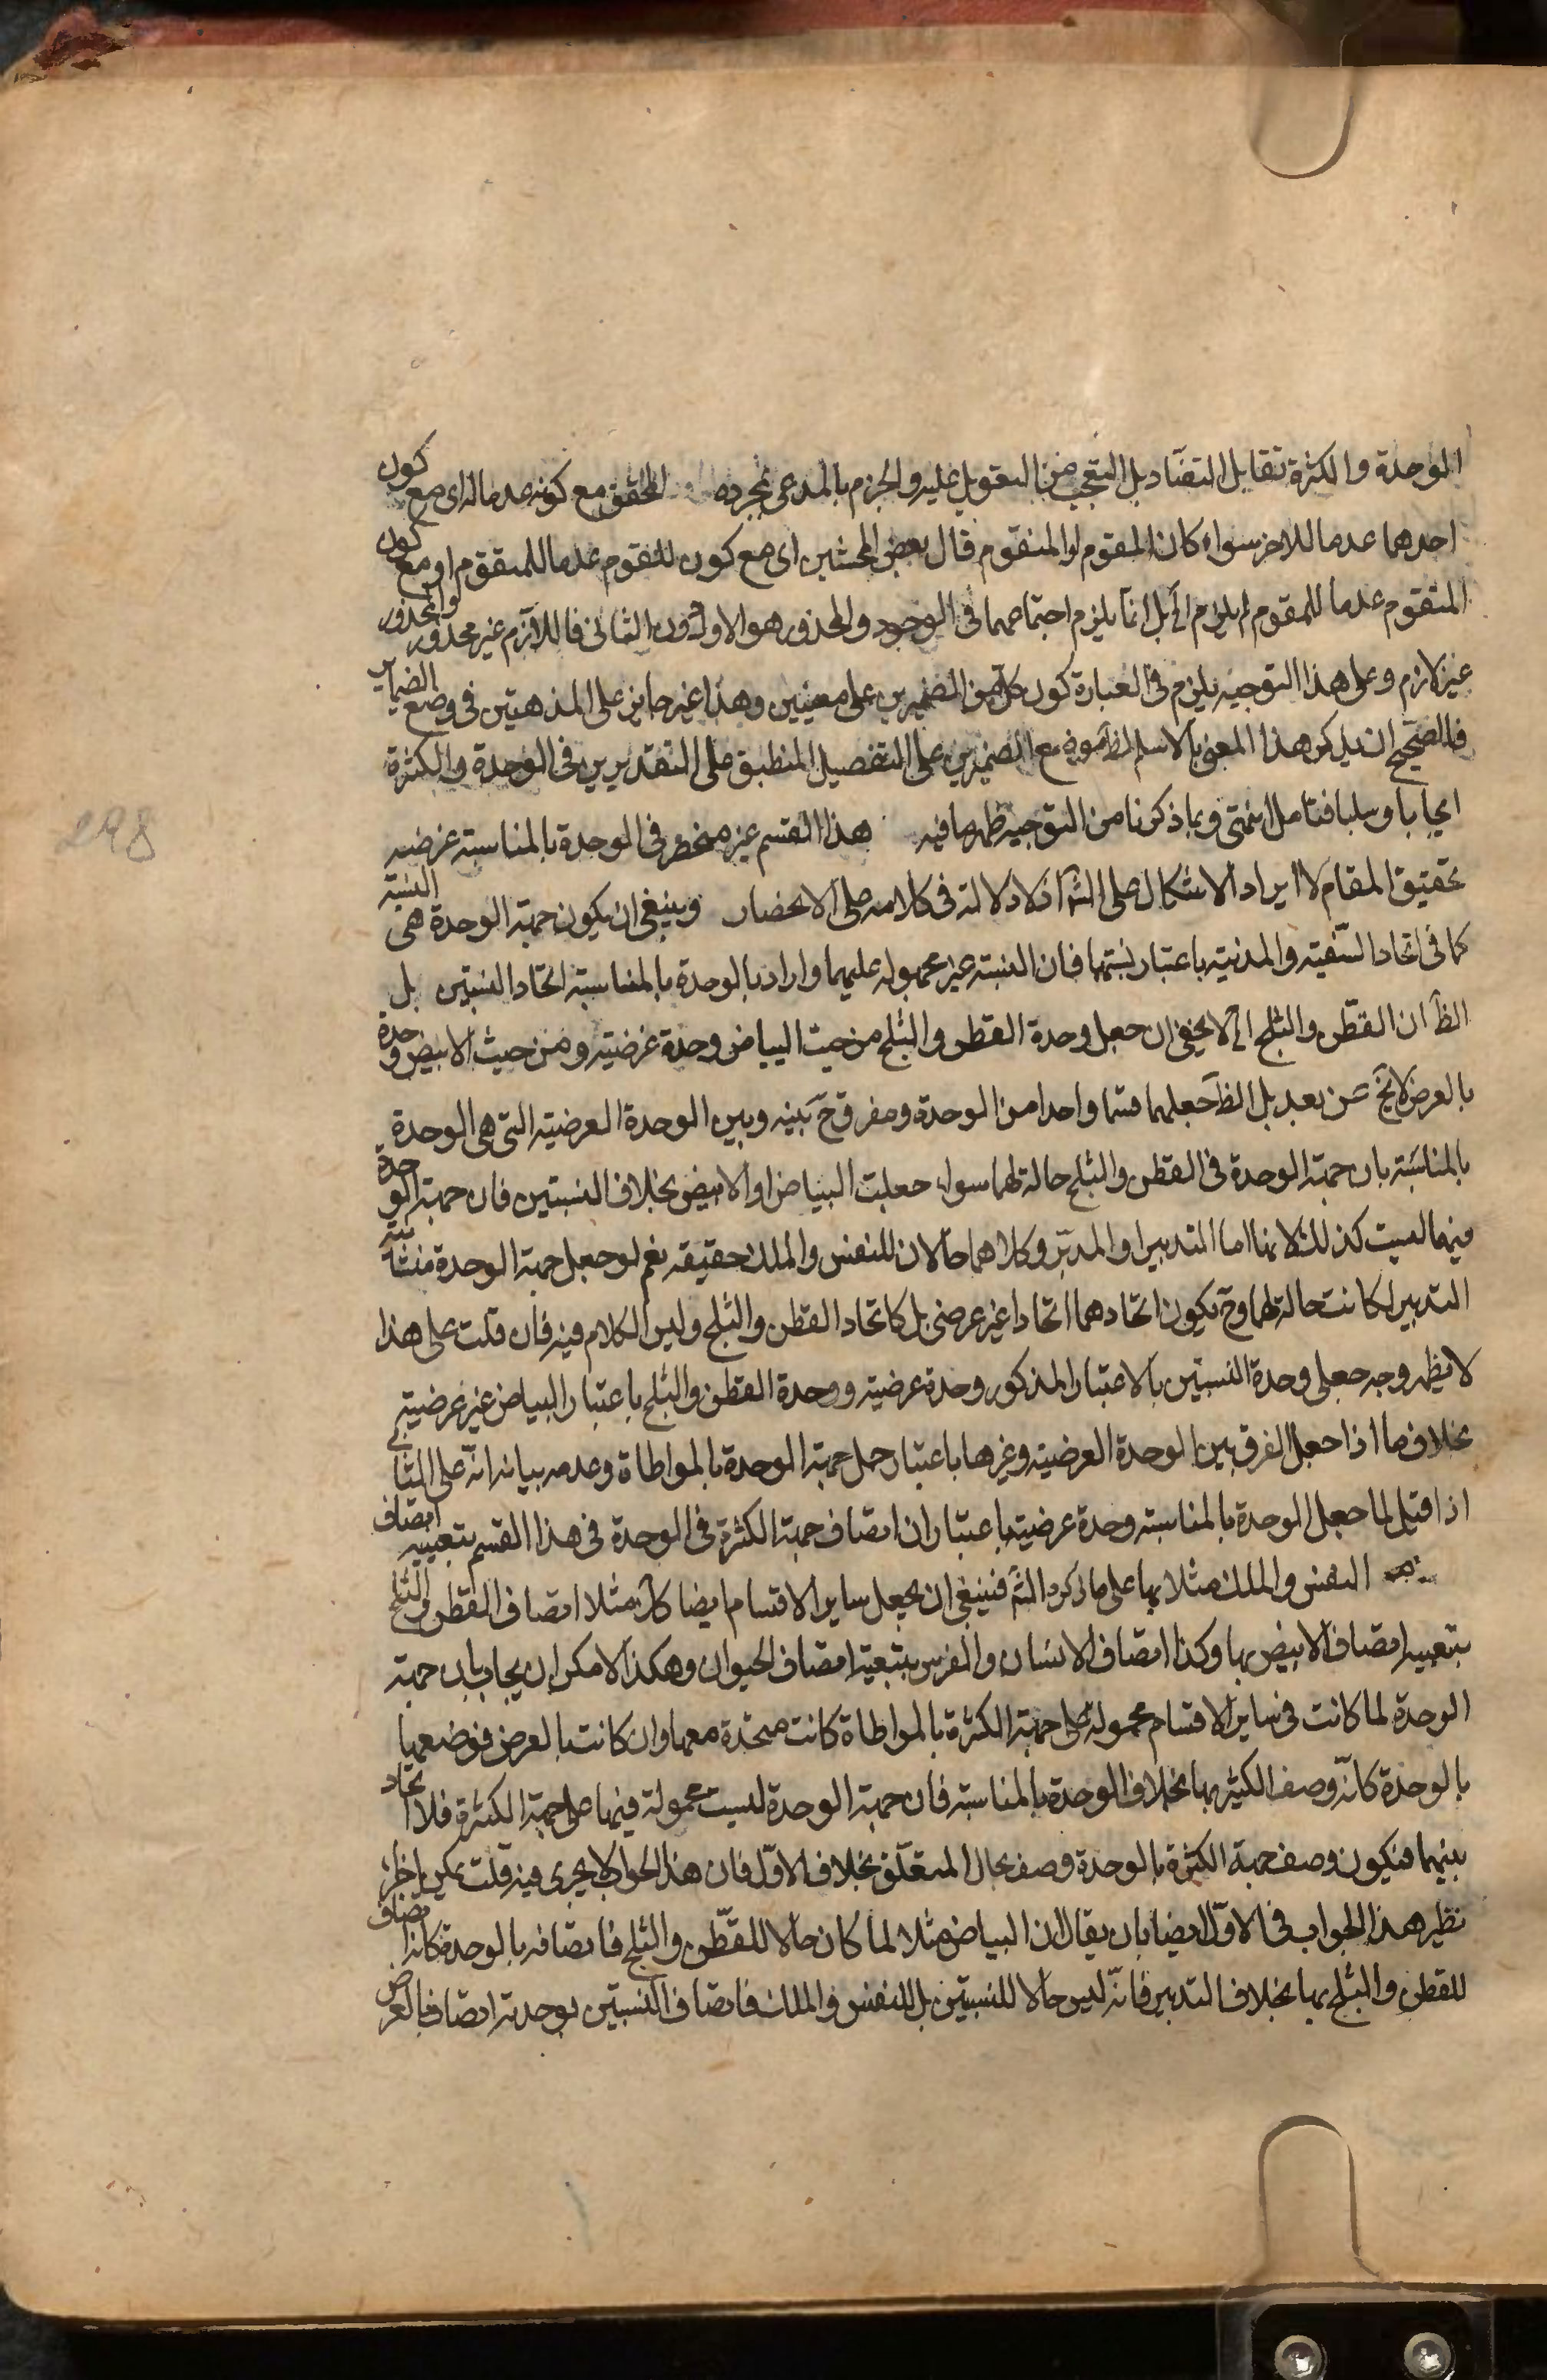 الوحدة والكثرة تقابل التضاد بل التعجب من التعويل عليه والجزم بالمدعى بمجرده المحقق مع كونه عدما له اى مع كون
احدهما عدما للاخر سواء كان المقوم او المتقوم قال بعض المحشين اى مع كون المقوم عدما للمتقوم او مع كون
المتقوم عدما للمقوم لم يلزم الخ بل انما يلزم اجتماعهما فى الوجود والمحذور هو الاول دون الثانى فاللازم غير محذور والمحذور
غير لازم وعلى هذا التوجيه يلزم فى العبارة كون كل من الضميرين على معنيين وهذا غير جايز على المذهبين فى وضع الضماير
فالصحيح ان يذكر هذا المعنى بالاسم الظ موضع الضميرين على التفصيل المنطبق على التقديرين فى الوحدة والكثرة
ايجابا وسلبا فتامل انتهى وبما ذكرنا من التوجيه ظهر ما فيه هذا القسم غير منحصر فى الوحدة بالمناسبة غرضه
تحقيق المقام لا ايراد الاشكال على الش اذ لا دلالة فى كلامه على الانحصار وينبغى ان يكون جهة الوحدة هى النسبة
كما فى اتحاد السفينة والمدينة باعتبار نسبتهما فان النسبة غير محمولة عليهما واراد بالوحدة بالمناسبة اتحاد النسبتين بل
الظ ان القطن والثلج الخ لا يخفى ان جعل وحدة القطن والثلج من حيث البياض وحدة عرضية ومن حيث الابيض وحدة
بالعرض لا يخ عن بعد بل الظ جعلهما قسما واحدا من الوحدة ومفرق ح بينه وبين الوحدة العرضية التى هى الوحدة
بالمناسبة بان جهة الوحدة فى القطن والثلج حالة لهما سواء جعلت البياض او الابيض بخلاف النسبتين فان جهة الوحدة
فيهما ليست كذلك لانها اما التدبير او المدبر وكلاهما حالان للنفس والملك حقيقه نعم لو جعل جهة الوحدة منشأية
التدبير لكانت حالة لهما وح يكون اتحادهما اتحادا غير عرضى بل كاتحاد القطن والثلج وليس الكلام فيه فان قلت على هذا
لا يظهر وجه جعل وحدة النسبتين بالاعتبار المذكور وحدة عرضية ووحدة القطن والثلج باعتبار البياض غير عرضية
بخلاف ما اذا جعل الفرق بين الوحدة العرضية وغيرها باعتبار حمل جهة الوحدة بالمواطاة وعدمه بيانه انه على الثانى
اذا قيل لما جعل الوحدة بالمناسبة وحدة عرضية باعتبار ان اتصاف جهة الكثرة فى الوحدة فى هذا القسم بتبعية اتصاف
النفس والملك مثلا بها على ما ذكره الش فينبغى ان يجعل ساير الاقسام ايضا كك مثلا اتصاف القطن والثلج
بتبعية اتصاف الابيض بها وكذا اتصاف الانسان والفرس بتبعية اتصاف الحيوان وهكذا لامكن ان يجاب بان جهة
الوحدة لما كانت فى ساير الاقسام محمولة على جهة الكثرة بالمواطاة كانت متحدة معها وان كانت بالعرض فوضعها
بالوحدة كانه وصف الكثير بها بخلاف الوحدة بالمناسبة فان جهة الوحدة ليست محمولة فيها على جهة الكثرة فلا اتحاد
بينهما فيكون وصف جهة الكثرة بالوحدة وصف بحال المتعلق بخلاف الاول فان هذا الجواب لا يجرى فيه قلت يمكن اجراء
نظير هذا الجواب فى الاول ايضا بان يقال ان البياض مثلا لما كان حالا للقطن والثلج فاتصافه بالوحدة كانه اتصاف
للقطن والثلج بها بخلاف التدبير فانه ليس حالا للنسبتين بل للنفس والملك فاتصاف النسبتين بوحدته اتصاف بالعرض
298